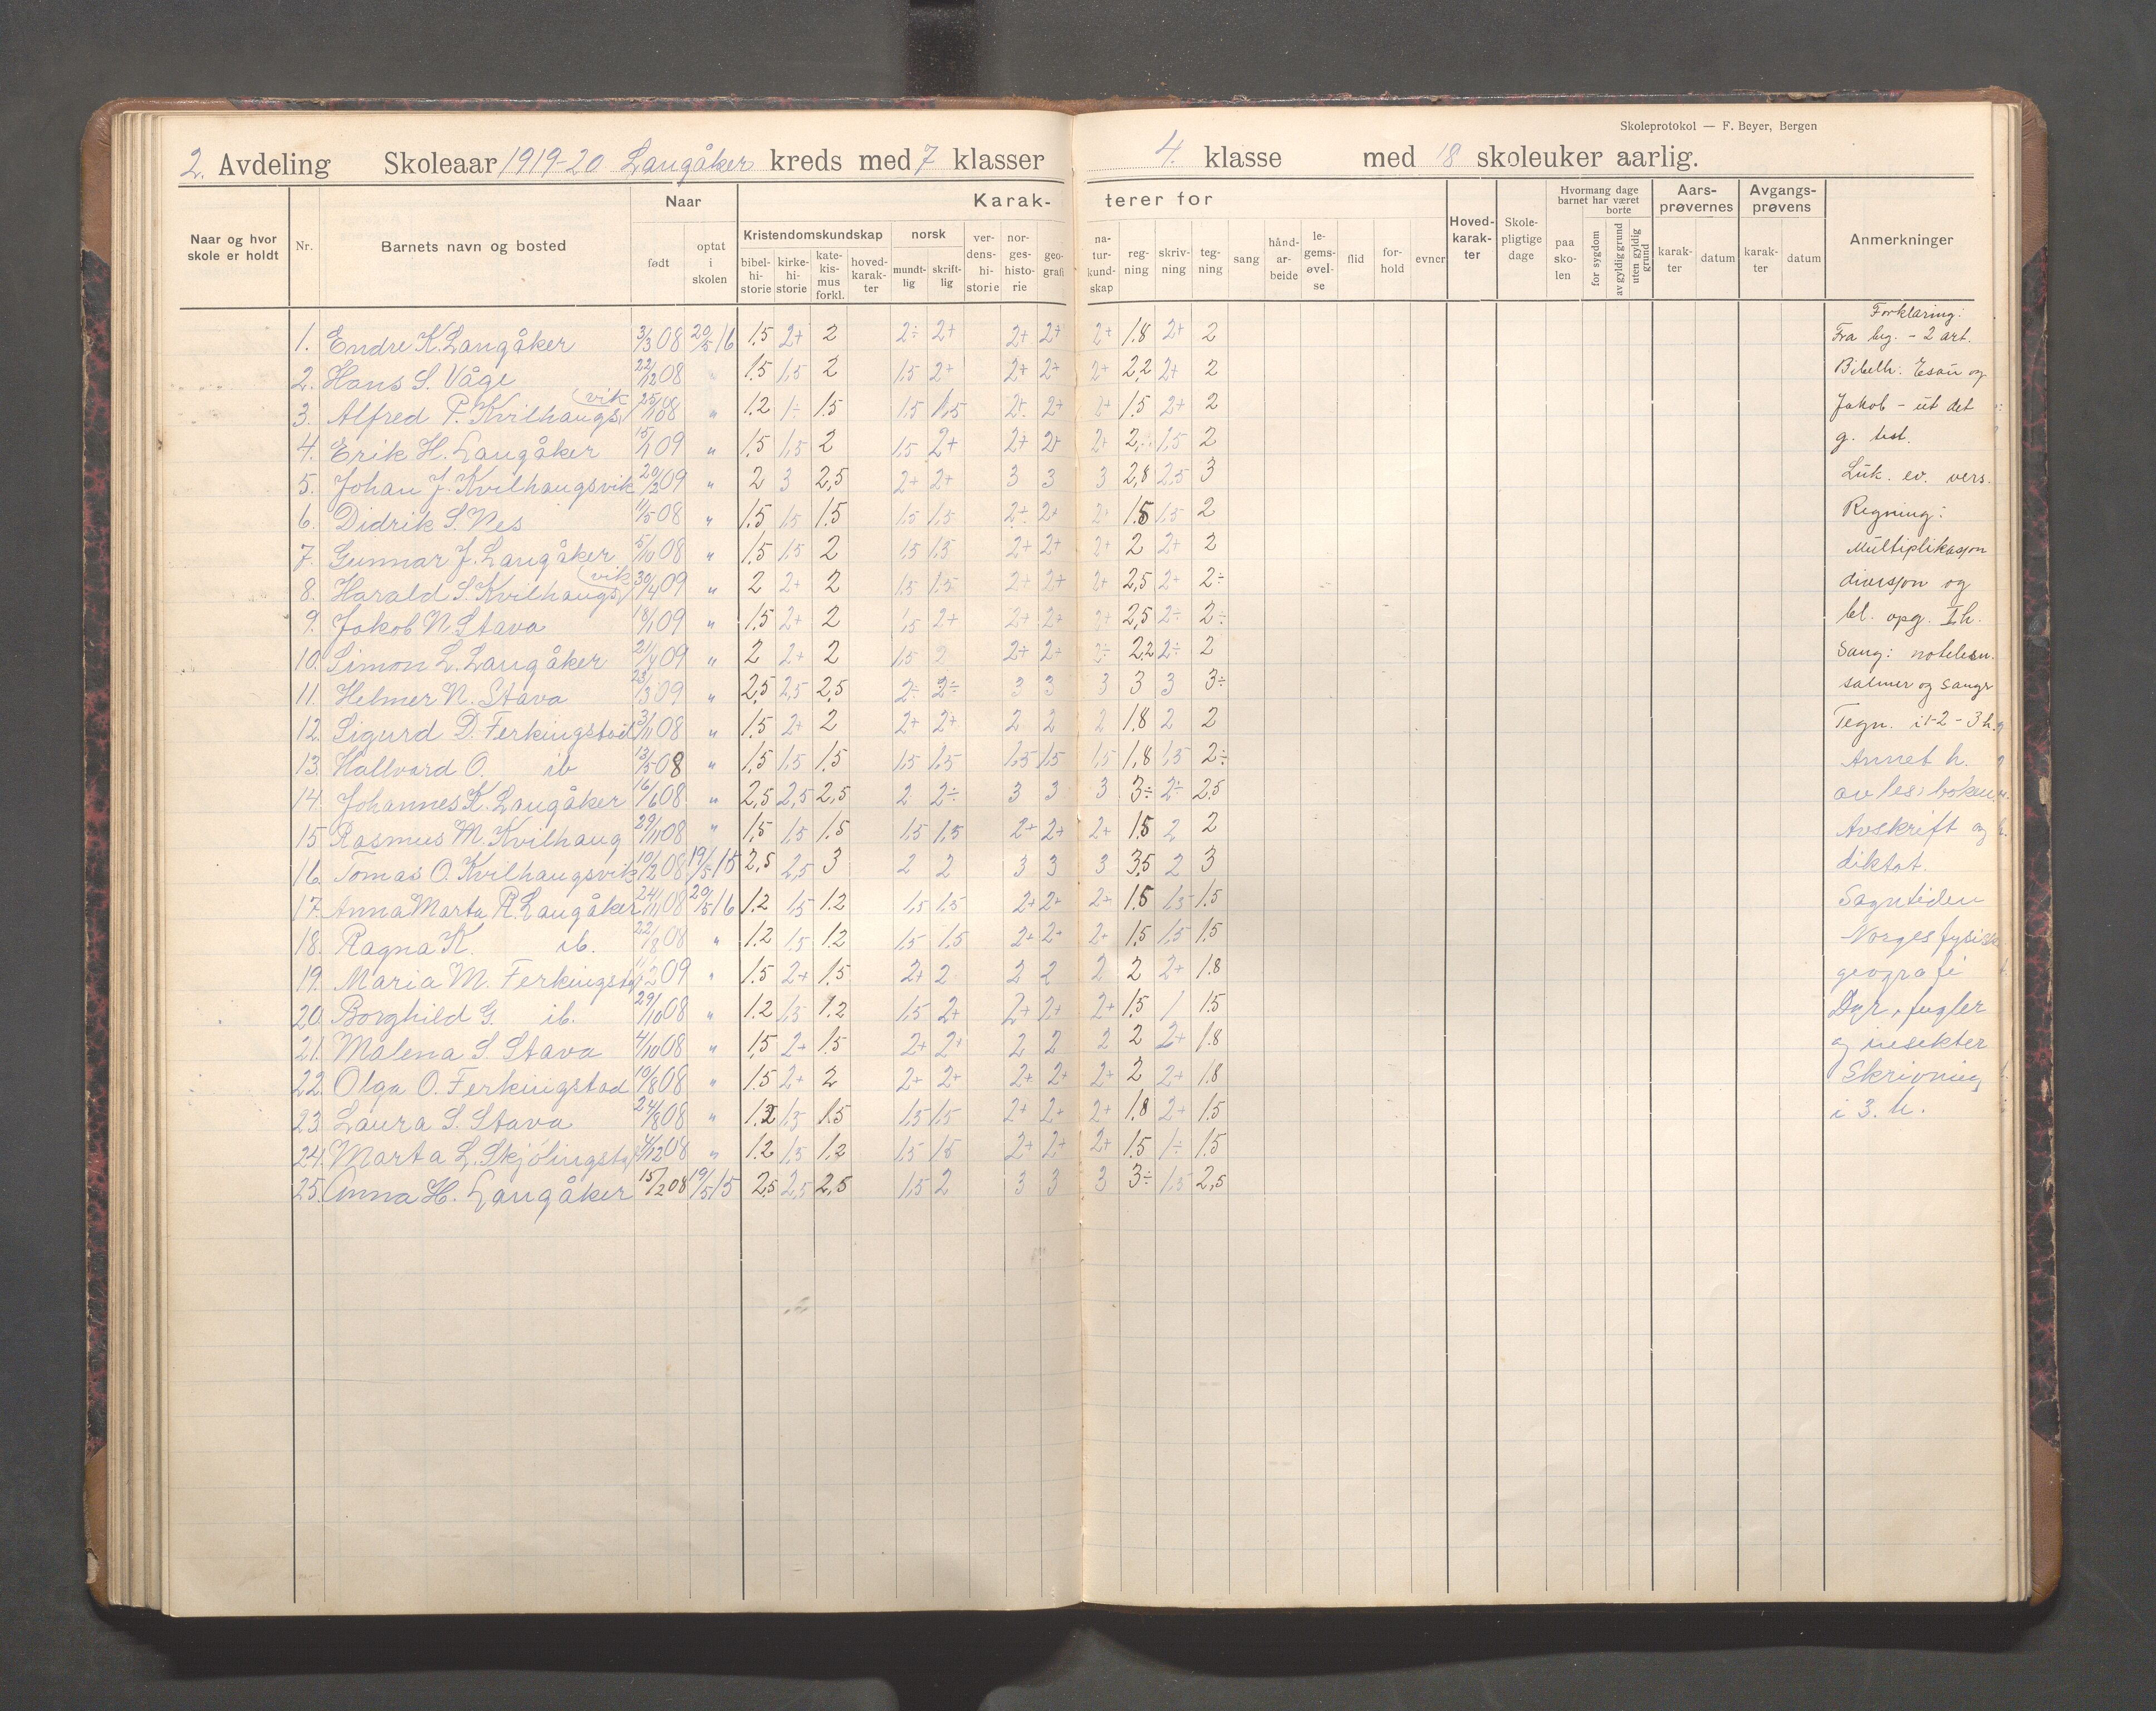 Skoleprotokol — F. Beyer, Bergen
2. Avdeling Skoleaar 1919-20 Langåker kreds med 7 klasser 4. klasse med 18 skoleuker aarlig.
Naar og hvor skole er holdt | Nr. | Barnets navn og bosted | Naar født | optat i skolen | Karakterer for | Kristendomskundskap | bibelhistorie | kirkehistorie | katekismus forkl. | hovedkarakter | norsk | mundtlig | skriftlig | verdenshistorie | norgeshistorie | geografi | naturkundskap | regning | skrivning | tegning | sang | håndarbeide | legemsøvelse | flid | forhold | evner | Hovedkarakter | Skolepligtige dage | Hvormang dage barnet har været | paa skolen | borte | for sygdom | av gyldig grund | uten gyldig grund | Aarsprøvernes | karakter | datum | Avgangsprøvens | karakter | datum | Anmerkninger
1. Endre K. Langåker 3/3 08 20/5 16 1.5 2+ 2 2÷ 2+ 2+ 2+ 2+ 1.8 2+ 2
2. Hans S. Våge 22/12 08 1.5 1.5 2 1.5 2+ 2+ 2+ 2+ 2,2 2+ 2
3. Alfred P. Kvilhaugsvik 25/10 08 " 1.2 1÷ 1.5 1.5 1.5 2+ 2+ 2+ 1.5 2+ 2
4. Erik H. Langåker 15/1 09 " 1.5 1.5 2 1.5 2+ 2+ 2+ 2+ 2 1.5 2
5. Johan J. Kvilhaugsvik 20/2 09 " 2 3 2,5 2+ 2+ 3 3 3 2,8 2.5 3
6. Didrik S. Nes 11/5 08 " 1.5 1.5 1.5 1.5 1.5 2+ 2+ 2+ 1.5 1.5 2
7. Gunnar J. Langåker 5/10 08 " 1.5 1.5 2 1.5 1.5 2+ 2+ 2+ 2 2+ 2
8. Harald S. Kvilhaugsvik 30/4 09 " 2 2+ 2 1.5 1.5 2+ 2+ 2+ 2,5 2+ 2÷
9. Jakob N. Stava 18/1 09 " 1.5 2+ 2 1.5 2+ 2+ 2+ 2+ 2,5 2÷ 2÷
10. Simon L. Langåker 21/4 09 " 2 2+ 2 1.5 2 2+ 2+ 2÷ 2.2 2÷ 2
11. Helmer N. Stava 23/3 09 " 2,5 2,5 2,5 2÷ 2÷ 3 3 3 3 3 3÷
12. Sigurd D. Ferkingstad 3/11 08 " 1.5 2+ 2 2+ 2+ 2 2 2 1.8 2 2
13. Hallvard O. ib 13/5 08 " 1,5 1.5 1.5 1.5 1.5 1.5 1.5 1.5 1,8 1.5 2÷
14. Johannes K. Langåker 16/6 08 " 2,5 2,5 2,5 2 2÷ 3 3 3 3÷ 2÷ 2.5
15 Rasmus M. Kvilhaug 29/11 08 " 1.5 1.5 1.5 1.5 1.5 2+ 2+ 2+ 1.5 2 2
16. Tomas O. Kvilhaugsvik 10/2 08 19/5 15 2,5 2,5 3 2 2 3 3 3 3,5 2 3
17. Anna Marta R. Langåker 24/11 08 20/5 16 1.2 1.5 1.2 1.5 1.5 2+ 2+ 2+ 1.5 1.5 1.5
18. Ragna K. ib. 22/8 08 " 1.2 1.5 1.2 1.5 1.5 2+ 2+ 2+ 1.5 1.5 1.5
19. Maria M. Ferkingsta 09 " 1.5 2+ 1.5 2+ 2 2 2 2 2 2+ 1.8
20. Borghild G. ib. 29/10 08 " 1.2 1.5 1.2 1.5 2+ 2+ 2+ 2+ 1.5 1 1.5
21. Malena S. Stava 4/10 08 " 1.5 2+ 1.5 2+ 2+ 2 2 2 2 2+ 1.8
22. Olga O. Ferkingstad 10/8 08 " 1.5 2+ 2 2+ 2+ 2+ 2+ 2+ 2 2+ 1.8
23. Laura S. Stava 24/8 08 " 1.2 1.5 1.5 1.5 1.5 2+ 2+ 2+ 1.8 2+ 1.5
24. Marta L. Skjölingsta 4/12 08 " 1.2 1.5 1.2 1.5 1.5 2+ 2+ 2+ 1.5 1÷ 1.5
25. Anna H. Langåker 15/2 08 19/5 15 2,5 2,5 2,5 1.5 2 3 3 3 3÷ 1.5 2,5
Forklaring:
Fra beg. - 2 art.
Bibelh. Esau og
Jakob - ut det
g. test.
Luk. ev. vers.
Regning:
Multiplikasjon
divisjon og
bl. opg. I h.
Sang: notelesn.
salmer og sangr
Tegn. i 1-2-3 h.
Annet h.
av leseboken
Avskrift og
diktat.
Sagntiden
Norges fysiske
geografi
Dyr, fugler
og insekter
Skrivning
i 3. h.